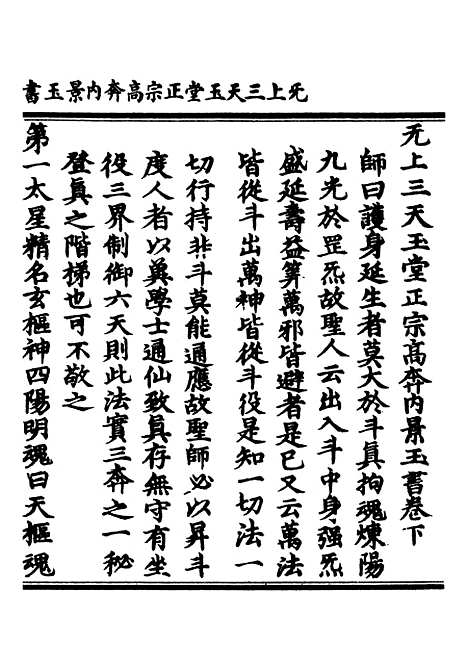 无上三天玉堂正宗高奔内景玉書
无上三天玉堂正宗高奔内景玉書卷下
師曰護身延生者莫大於斗真拘魂煉陽
九光於罡炁故聖人云出入斗中身强炁
盛延壽益筭萬邪皆避者是已又云萬法
皆從斗出萬神皆從斗役是知一切法一
切行持非斗莫能通應故聖師必以昇斗
度人者以冀學士通仙致真存無守有坐
役三界制御六天則此法實三奔之一秘
登真之階梯也可不敬之
第一太星精名玄樞神四陽明魂曰天樞魂